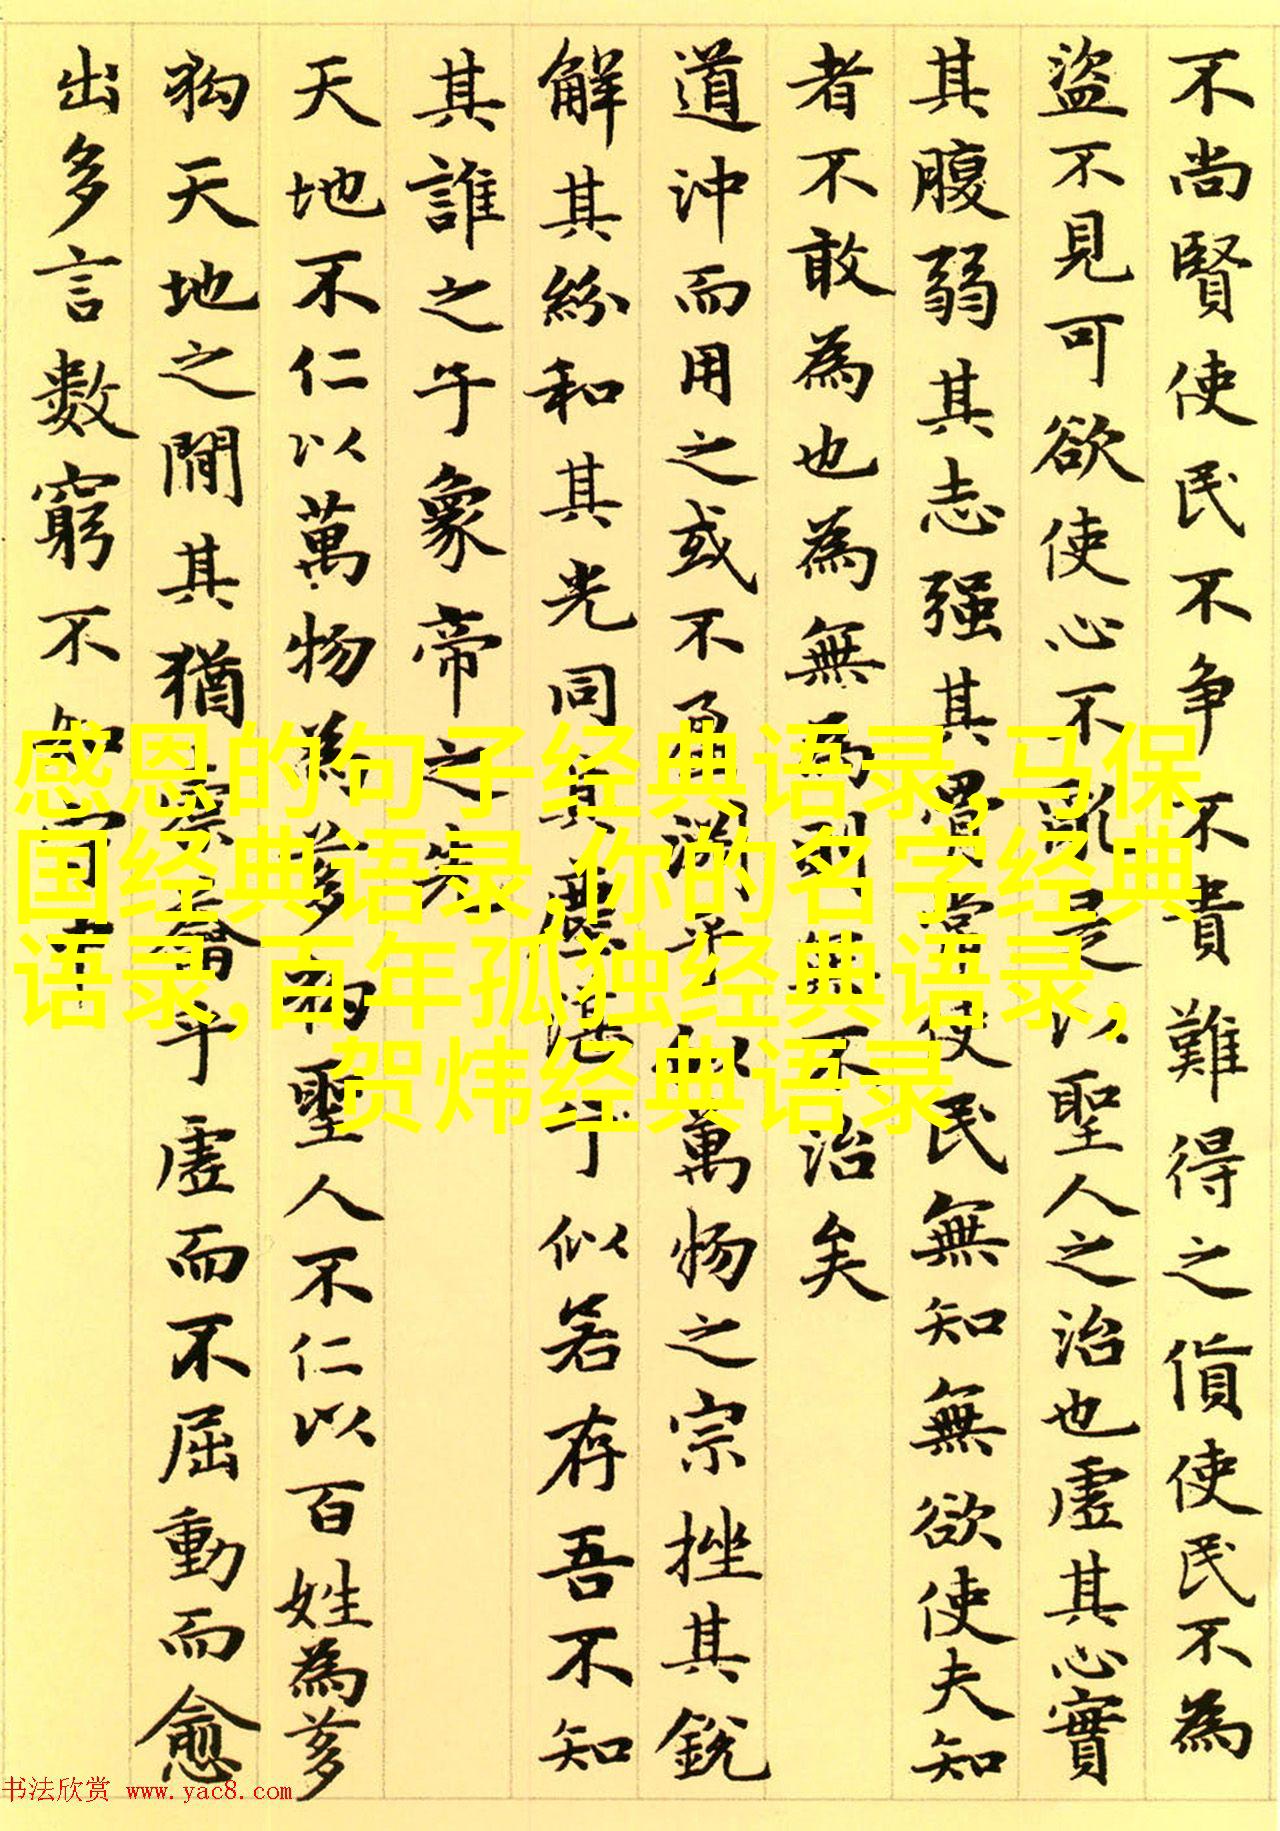 不尚賢使民不争不貴難得之貨使民不為
盜不見可欲使心不亂是以聖人之治也虛其心實
其腹弱其志强其骨常使民無知無欲使夫知
者不敢為也為無為則無不治矣
道沖而用之或不盈淵乎似萬物之宗挫其銳
解其紛和其光同其塵湛乎似若存吾不知
其誰之子象帝之先
天地不仁以萬物為芻狗聖人不仁以百姓為芻
狗天地之間其猶橐籥乎虛而不屈動而愈
出多言數窮不如守中
感恩的句子经典语录,马保
国经典语录,你的名字经典
语录,百年孤独经典语录,
贺炜经典语录
书法欣赏 www.yac8.com